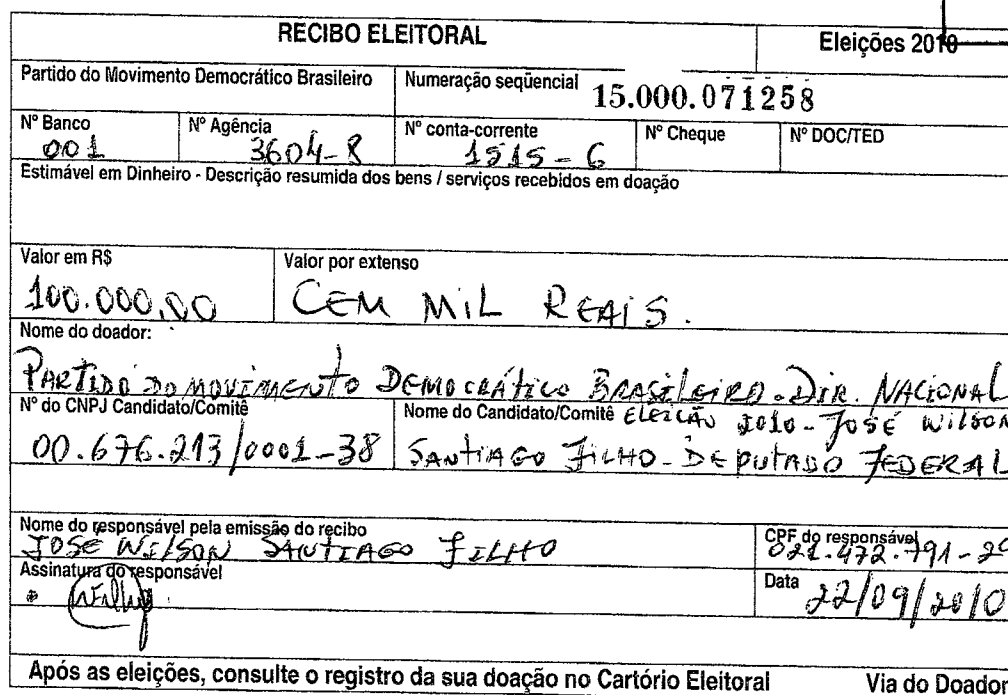 RECIBO ELEITORAL
Eleições 2010
Partido do Movimento Democrático Brasileiro
Numeração seqüencial 15.000.071258
Nº Banco
001
Nº Agência
3604-8
Nº conta-corrente
1515-6
Nº Cheque
Nº DOC/TED
Estimável em Dinheiro - Descrição resumida dos bens / serviços recebidos em doação
Valor em R$
100.000,00
Valor por extenso
CEM MIL REAIS.
Nome do doador:
PARTIDO DO MOVIMENTO DEMOCRÁTICO BRASILEIRO - DIR. NACIONAL
Nº do CNPJ Candidato/Comitê
00.676.213/0001-38
Nome do Candidato/Comitê ELEIÇÃO 2010 - JOSÉ WILSON
SANTIAGO FILHO - DEPUTADO FEDERAL
Nome do responsável pela emissão do recibo
JOSE WILSON SANTIAGO FILHO
CPF do responsável
021.472.791-
Assinatura do responsável
Data 22/09/2010
Após as eleições, consulte o registro da sua doação no Cartório Eleitoral
Via do Doador